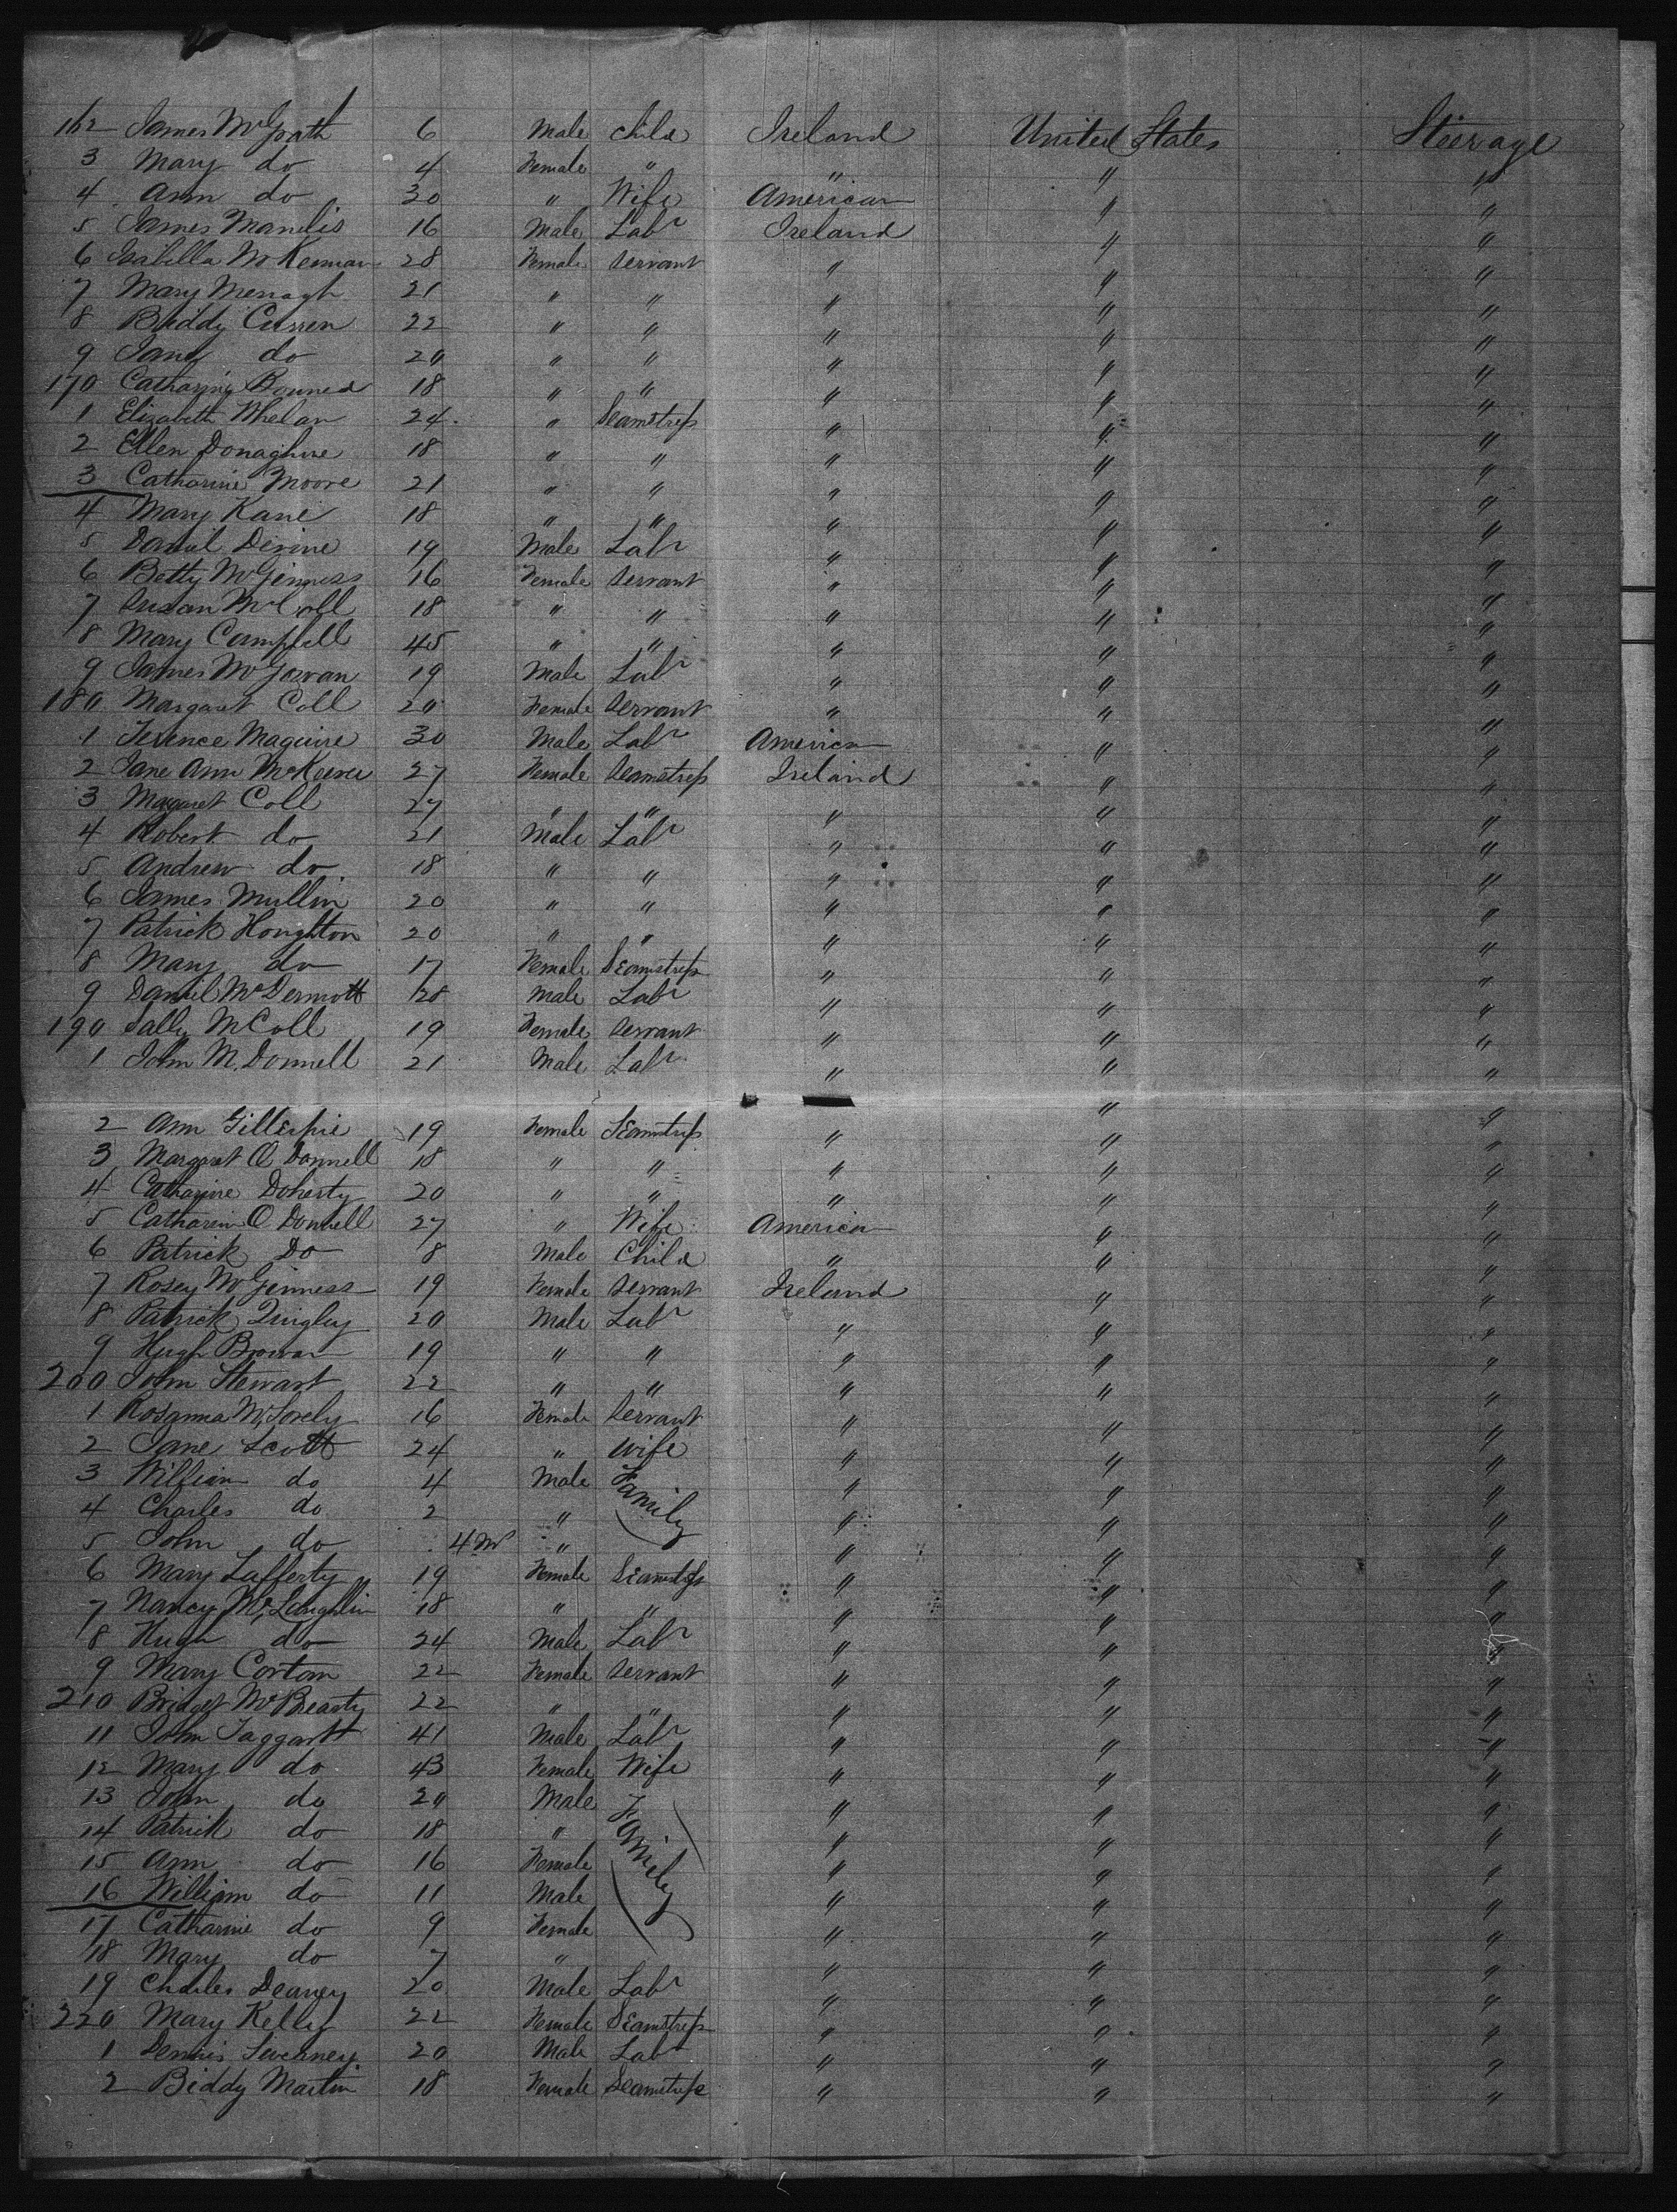 162 James McGrath 6 Male child Ireland United States Steerage
3 Mary do 4 Female " " " "
4 Ann do 30 " Wife American " "
5 James Mandis 16 Male Labr Ireland " "
6 Isabella McKernan 28 Female Servant " " "
7 Mary Menagh 21 " " " " "
8 Biddy Curren 22 " " " " "
9 Jane do 20 " " " " "
170 Catharine 18 " " " " "
1 Elizabeth Whelan 24 " Seamstress " " "
2 Ellen Donaghue 18 " " " " "
3 Catharine Moore 21 " " " " "
4 Mary Kane 18 " " " " "
5 Daniel Devine 19 Male Labr " " "
6 Betty McGinness 16 Female Servant " " "
7 Susan McColl 18 " " " " "
8 Mary Campbell 45 " " " " "
9 James McGowan 19 Male Labr " " "
180 Margaret Coll 20 Female Servant " " "
1 Terence Maguire 30 Male Labr America " "
2 Jane Ann 27 Female Seamstress Ireland " "
3 Magaret Coll 27 " " " " "
4 Robert do 21 Male Labr " " "
5 Andrew do 18 " " " " "
6 James Mullin 20 " " " " "
7 Patrick Houghton 20 " " " " "
8 Mary do 17 Female Seamstress " " "
9 Daniel McDermott 20 Male Labr " " "
190 Sally McColl 19 Female Servant " " "
1 John M. Donnell 21 Male Labr " " "
2 Ann Gillespie 19 Female Seamstress " " "
3 Margaret O Donnell 18 " " " " "
4 Catharine Doherty 20 " " " " "
5 Catharin O Donnell 27 " Wife America " "
6 Patrick Do 8 Male Child " " "
7 Rosey McGinness 19 Female Servant Ireland " "
8 Patrick Quigley 20 Male Labr " " "
9 Hugh Brown 19 " " " " "
200 John Stewart 22 " " " " "
1 Rosanna McSorely 16 Female Servant " " "
2 Jane Scott 24 " Wife " " "
3 William do 4 Male Family " " "
4 Charles do 2 " " " "
5 John do 4 Ms " " " "
6 Mary Lafferty 19 Female Seamstress " " "
7 Nancy McLaughlin 18 " " " " "
8 Hugh do 24 Male Labr " " "
9 Mary Cortom 22 Female Servant " " "
210 Bridget McBrearty 22 " " " " "
11 John Taggartt 41 Male Labr " " "
12 Mary do 43 Female Wife " " "
13 John do 20 Male Family " " "
14 Patrick do 18 " " " "
15 Ann do 16 Female " " "
16 William do 11 Male " " "
17 Catharine do 9 Female " " "
18 Mary do 7 " " " "
19 Charles Deaney 20 Male Labr " " "
220 Mary Kelly 22 Female Seamstress " " "
1 Dennis Sweeney 20 Male Labr " " "
2 Biddy Martin 18 Female Seamstress " " "